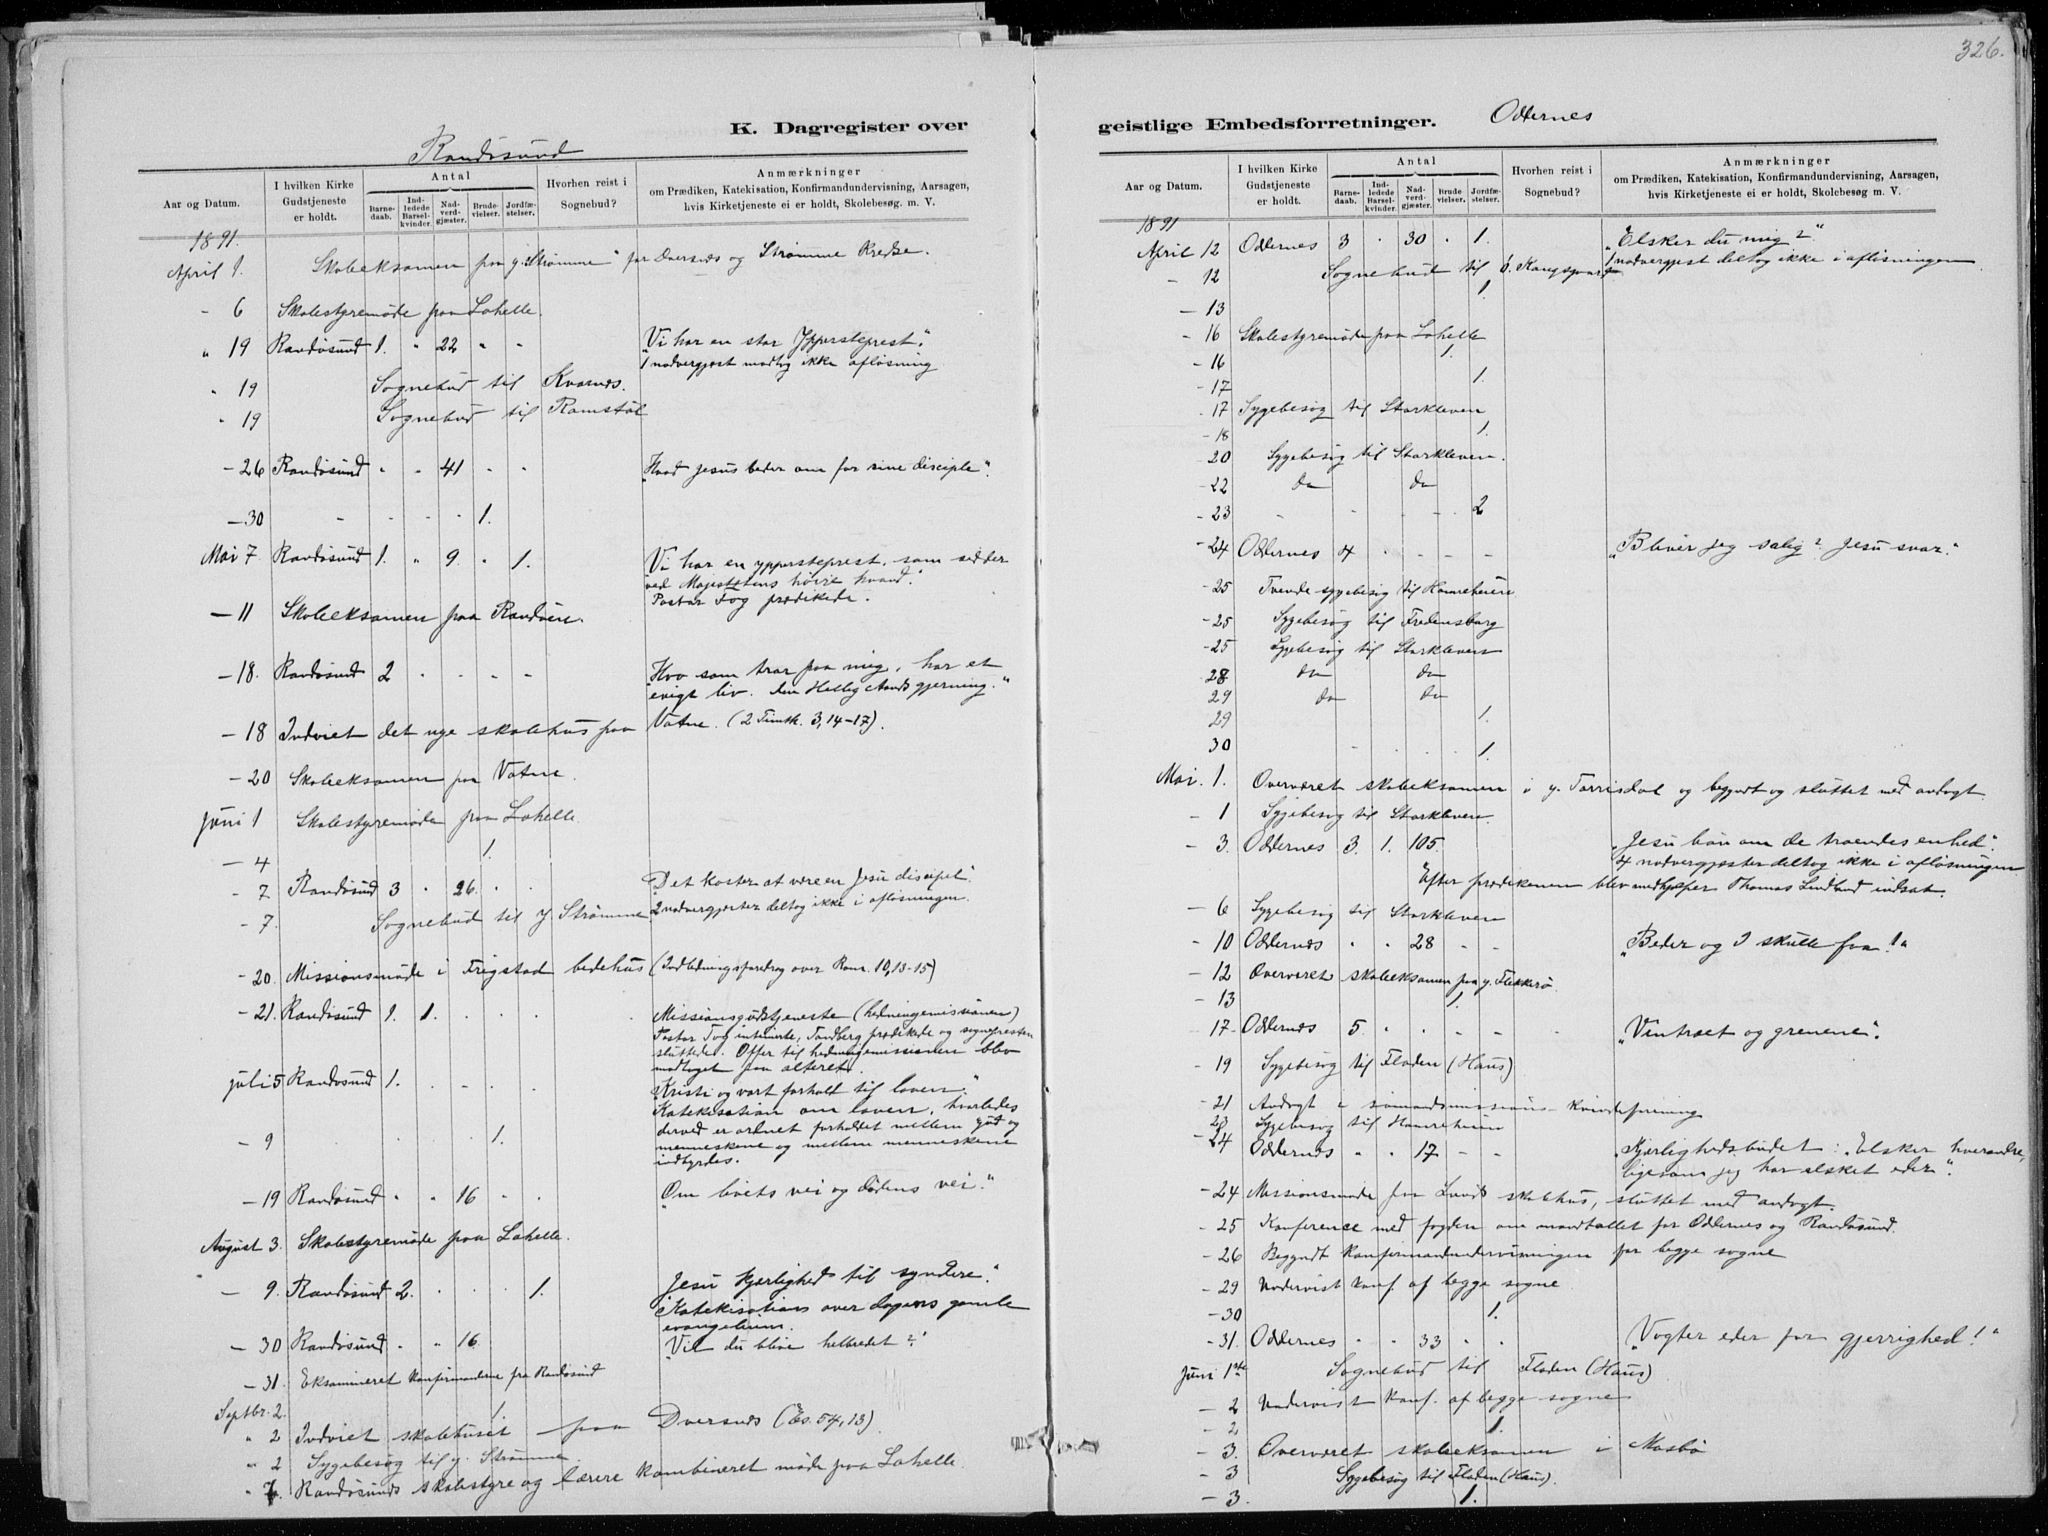 326.
K. Dagregister over
Randøsund
Aar og Datum.
I hvilken Kirke Gudstjeneste er holdt.
Antal
Barnedaab.
Indledede Barselkvinder.
Nadverdgjæster.
Brudevielser.
Jordfæstelser.
Hvorhen reist i Sognebud?
Anmærkninger
om Prædiken, Katekisation, Konfirmandundervisning, Aarsagen,
hvis Kirketjeneste ei er holdt, Skolebesøg. m. V.
1891.
April 1. Skoleeksamen paa y. Strømme for Dversnes og Strømme Kredse.
- 6 Skolestyremøde paa Lohelle.
" 19 Randøsund 1. " 22 " " "Vi har en stor Yppersteprest."
1 nadvergjest modtog ikke afløsning
" 19 Sognebud til Kvarnes.
" 19 Sognebud til Romstøl
- 26 Randøsund " " 41 " " "Hvad Jesus beder om for sine disciple".
- 30 - - - - 1.
Mai 7 Randøsund 1. " 9 " 1. Vi har en ypperstepræst, som sidder
ved Majestætens høire haand."
Pastor Fog prædikede.
- 11 Skoleeksamen paa Randøen.
- 18. Randøsund 2 - - - - Hvo som tror paa mig, har et
evigt liv. Den Hellig Aands gjerning."
- 18 Indviet det nye skolehus paa Vatne. (2 Timoth. 3,14-17).
- 20 Skoleeksamen paa Vatne.
Juni 1 Skolestyremøde paa Lohelle.
- 4 1.
- 7 Randøsund 3 " 26 " " "Det koster at være en Jesu discipel".
2 nadvergjester deltog ikke i afløsningen.
- 7. Sognebud til y. Strømme
- 20. Missionsmøde i Frigstad bedehus (Indledningsforedrag over Rom. 10,13-15)
- 21. Randøsund 1. 1. - - - Missionsgudstjeneste (hedningemissionen)
Pastor Fog intimerte, Tandberg prædikede og sognepresten
sluttede. Offer til hedningemissionen blev
modtaget paa alteret.
Juli 5 Randøsund 1. - - - "Kristi og vort forhold til loven."
Katekisation om loven, hvorledes
derved er ordnet forholdet mellem Gud og
- 9 - - - - 1. menneskene og mellem menneskene
indbyrdes.
- 19 Randøsund " " 16 " " "Om livets vei og dødens vei."
August 3. Skolestyremøde paa Lohelle.
- 9. Randøsund 2. - - - 1. Jesu Kjærlighed til syndere."
Katekisation over dagens gamle
evangelium.
- 30 Randøsund - " 16 "Vil du blive helbredet?"
- 31. Eksamineret konfirmanderne fra Randøsund
Septbr. 2. 1.
" 2 Indviet skolehuset paa Dversnes (Es. 54,13).
" 2 Sygebesøg til y. Strømme
" 7. Randøsunds skolestyre og lærere kombineret møde paa Lohelle.
geistlige Embedsforretninger.
Oddernes
Aar og Datum.
I hvilken Kirke Gudstjeneste er holdt.
Antal
Barnedaab.
Indledede Barselkvinder.
Nadverdgjæster.
Brudevielser.
Jordfæstelser.
Hvorhen reist i Sognebud?
Anmærkninger
om Prædiken, Katekisation, Konfirmandundervisning, Aarsagen,
hvis Kirketjeneste ei er holdt, Skolebesøg m. V.
1891
April 12 Oddernes 3 " 30 " 1. "Elsker du mig?"
1 nadvergjest deltog ikke i afløsningen
- 12 Sognebud til ø. Kongsgaard
- 13 1.
- 16 Skolestyremøde paa Lohelle
- 16 1.
- 17 1.
- 17 Sygebesøg til Storkleven
- 18 1.
- 20 Sygebesøg til Storkleven.
- 22 do do
- 23 - - - - 2
- 24 Oddernes 4 - - - - "Bliver jeg salig? Jesu svar."
- 25 Tvende sygebesøg til Hamreheien
- 25 Sygebesøg til Fredensborg
- 25 Sygebesøg til Storkleven
- 28 do do
29 do do
29 1.
30 - - - - 1.
Mai. 1. Overværet skoleeksamen i y. Torrisdal og begyndt og sluttet med andagt.
- 1 Sygebesøg til Storkleven.
- 3. Oddernes 3. 1. 105 "Jesu bøn om de troendes enhed".
4 nadvergjester deltog ikke i afløsningen
Efter prædikenen blev medhjælper Thomas Lindlund indsat.
- 6 Sygebesøg til Storkleven
- 10 Oddernes " " 28 - - "Beder og I skulle faa!"
- 12 Overværet skoleeksamen paa y. Flekkerø
- 13 1.
- 17 Oddernes 5 " - - - "Vintræet og grenene".
- 19 Sygebesøg til Floden (Haus)
- 21 Andagt i sømandsmissions-kvindeforening
23 Sygebesøg til Hamreheien
- 24 Oddernes " " 17 - - "Kjærlighedsbudet: Elsker hverandre,
ligesom jeg har elsket eder".
- 24 Missionsmøde paa Lunds skolehus, sluttet med andagt.
- 25 Konference med fogden om mandtallet for Oddernes og Randøsund.
- 26 Begyndt konfirmandundervisningen for begge sogne
- 29 Undervist konf. af begge sogne
- 30 1.
- 31. Oddernes " " 33 " " "Vogter eder for gjerrighed!"
Juni 1ste Sognebud til Floden (Haus)
- 2 Undervist konf. af begge sogne
- 2 1.
- 3. Overværet skoleeksamen i Mosbø
- 3 Sygebesøg til Floden (Haus).
- 3. 1.